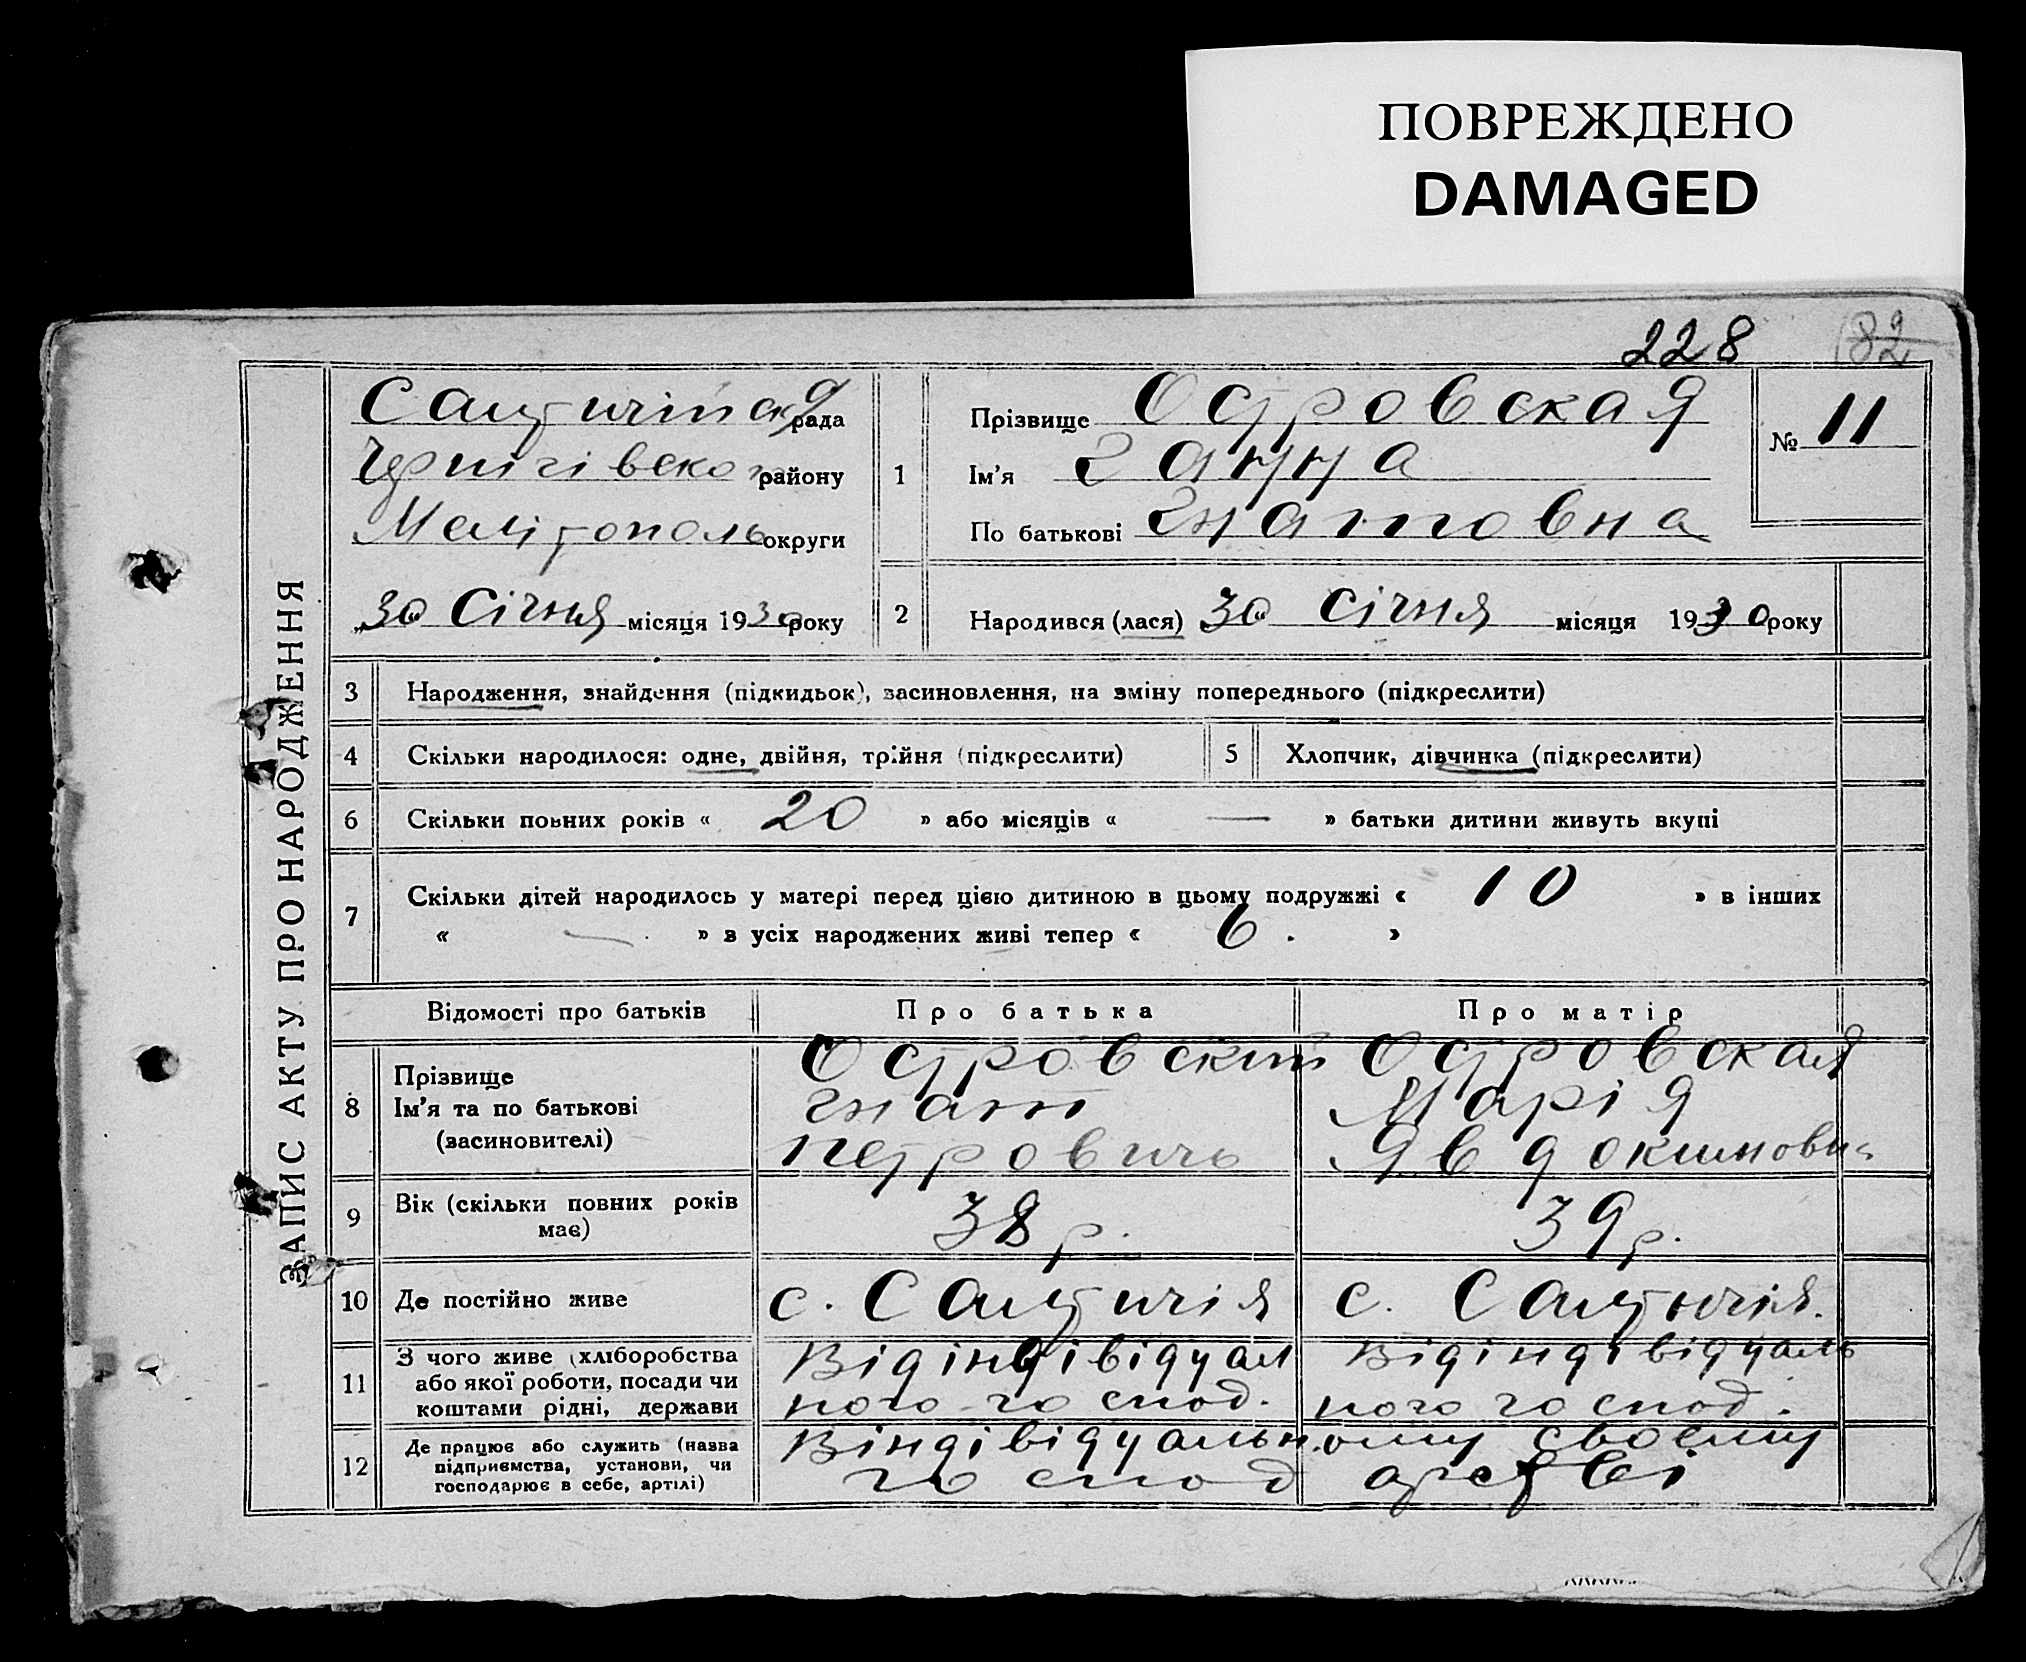 ПОВРЕЖДЕНО
DAMAGED
228
ЗАПИС АКТУ ПРО НАРОДЖЕННЯ
рада
Чернігівского району
Мелітополь округи
„30 Січня місяця 1930 року
1
Прізвище Островская
Ім'я Ганна
По батькові Гнатовна
№ 11
2 Народився (лася) 30 Січня місяця 1930 року
3 Народження, знайдення (підкидьок), засиновлення, на зміну попереднього (підкреслити)
4 Скільки народилося: одне, двійня, трійня (підкреслити) 5 Хлопчик, дівчинка (підкреслити)
6 Скільки повних років « 20 » або місяців « — » батьки дитини живуть вкупі
7 Скільки дітей народилось у матері перед цією дитиною в цьому подружжі « 10 » в інших
« — » з усіх народжених живі тепер « 6 . »
Відомості про батьків Про батька Про матір
8 Прізвище
Ім'я та по батькові
(засиновителі)
Островский
Гнат
Петровичь
Островская
Марія
Явдокимовн
9 Вік (скільки повних років
має)
38 р. 39 р.
10 Де постійно живе с. с.
11 З чого живе (хліборобства
або якої роботи, посади чи
коштами рідні, держави
Від індівідуал
ного госпо­д.
Від індівідуаль
ного господ.
12 Де працює або служить (назва
підприємства, установи, чи
господарює в себе, артілі)
В індівідуальному своєму
господарстві